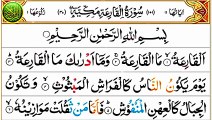 سُوْرَةُ الْقَارِعَةِ مَكِّيَّةٌ
بِسْمِ اللّٰهِ الرَّحْمٰنِ الرَّحِيْمِ
اَلْقَارِعَةُ ۙ مَا الْقَارِعَةُ ۚ وَمَاۤ اَدْرٰىكَ مَا الْقَارِعَةُ ؕ
يَوْمَ يَكُوْنُ النَّاسُ كَالْفَرَاشِ الْمَبْثُوْثِ ۙ وَتَكُوْنُ
الْجِبَالُ كَالْعِهْنِ الْمَنْفُوْشِ ؕ فَاَمَّا مَنْ ثَقُلَتْ مَوَازِيْنُهٗ ۙ